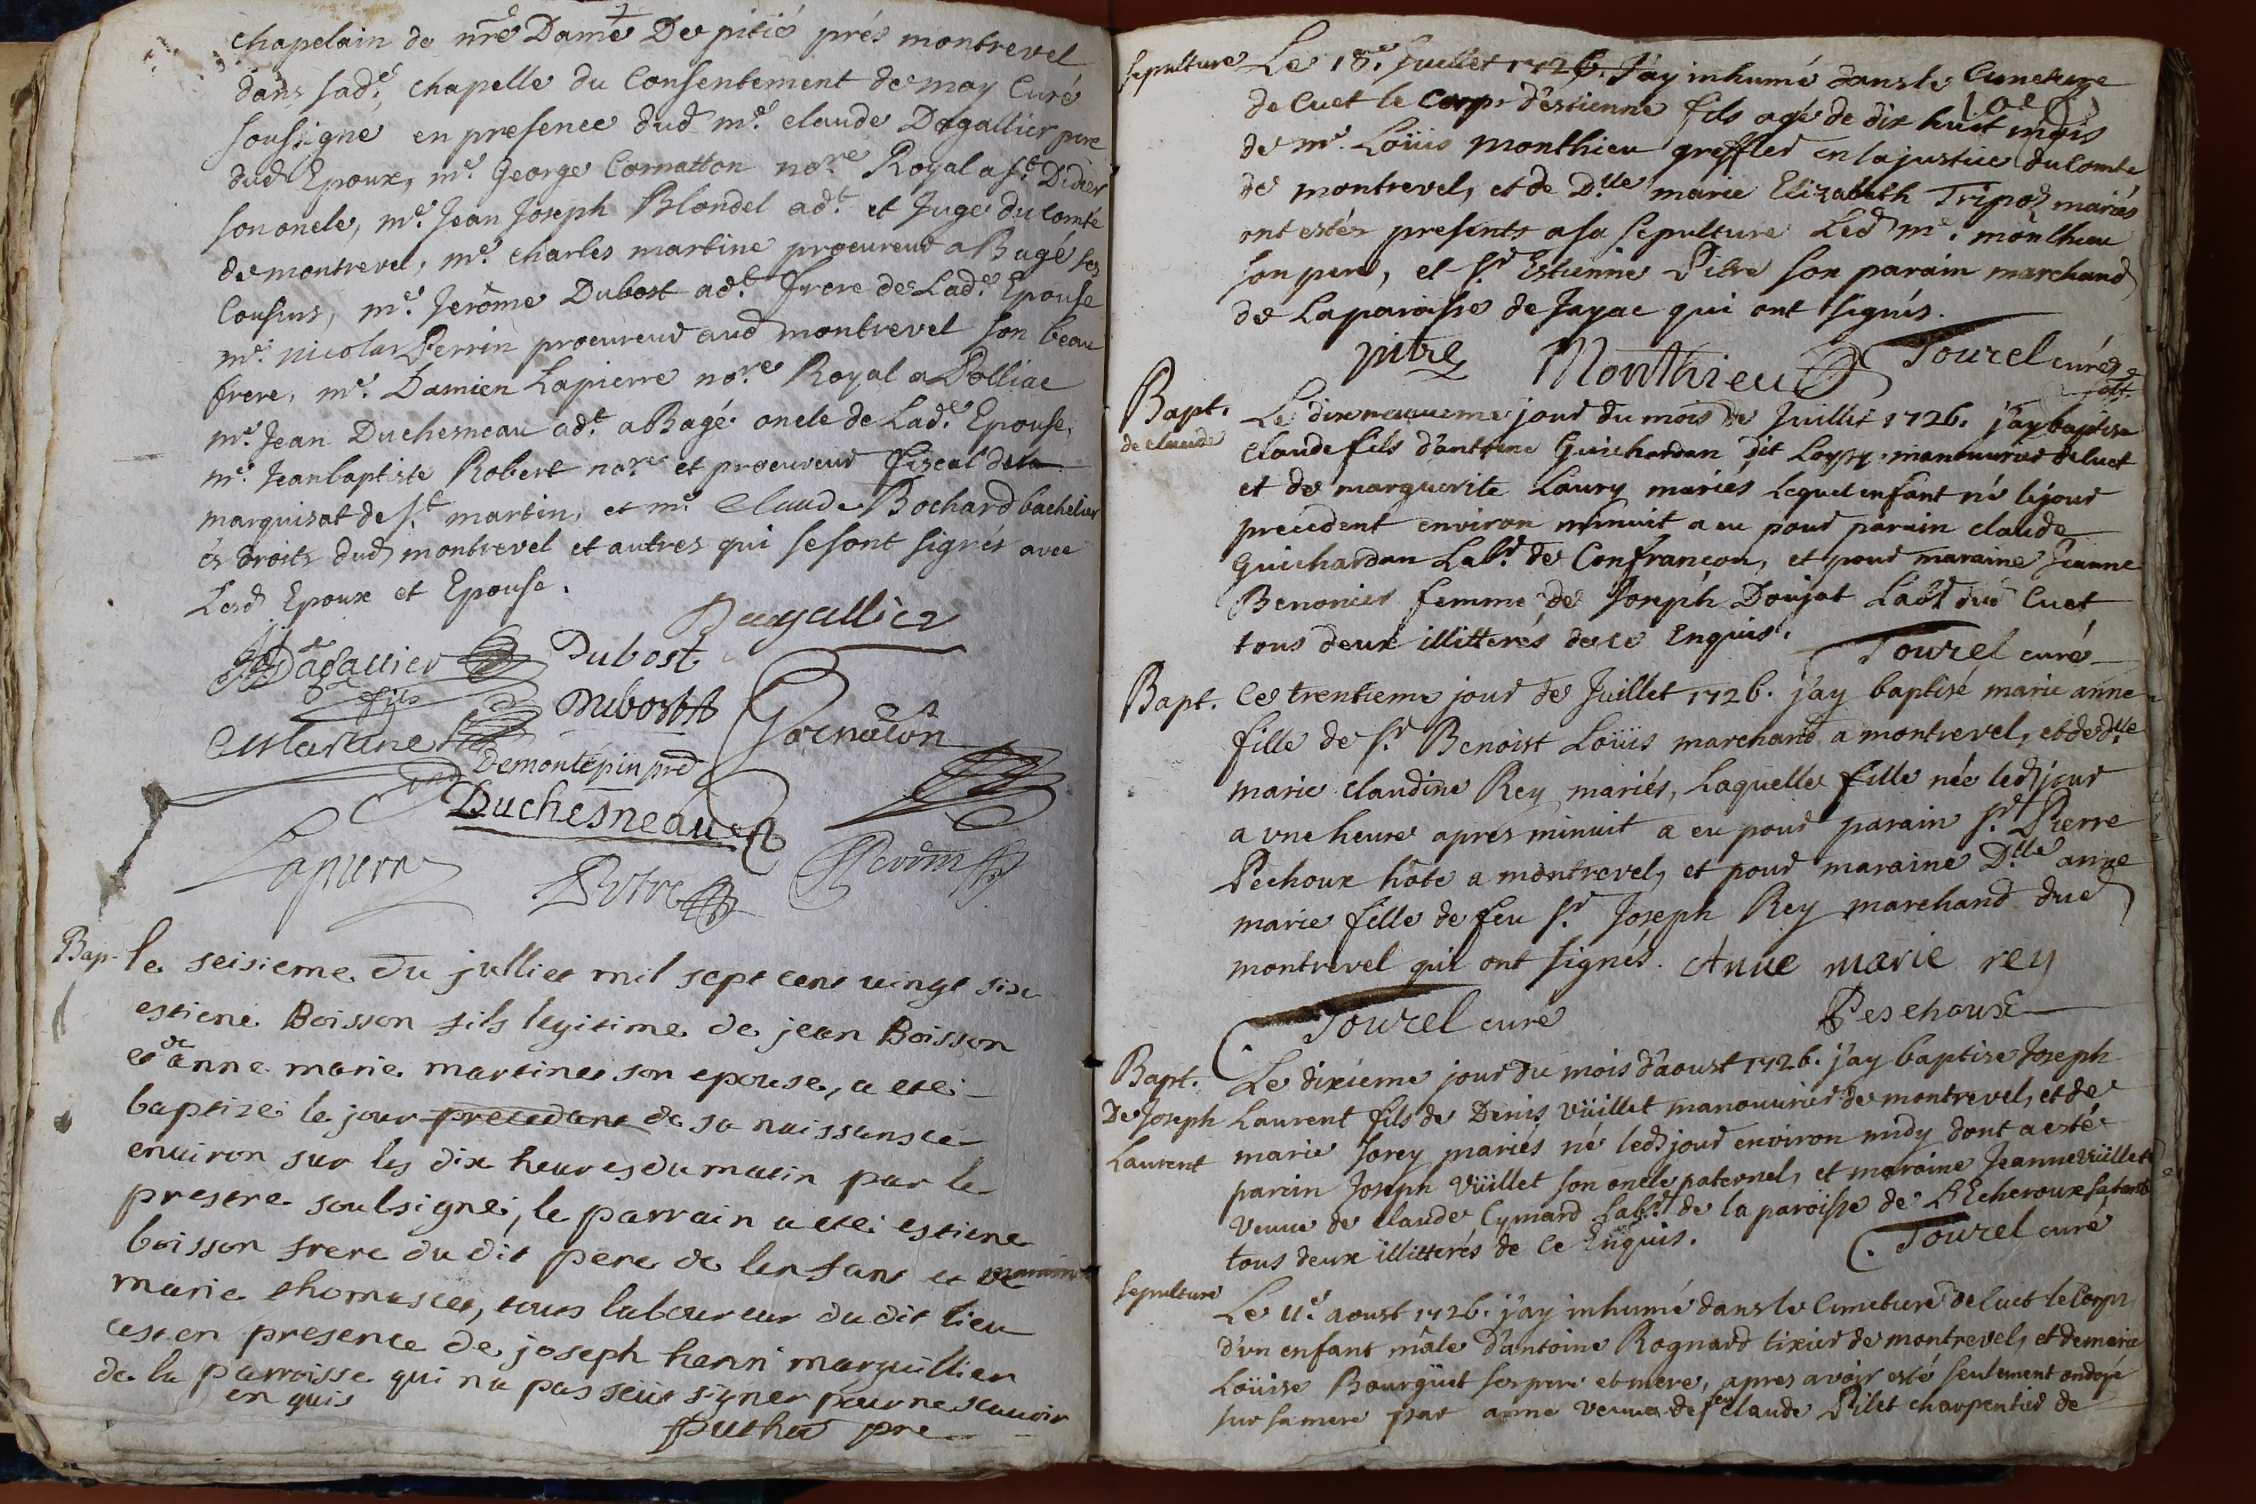 chapelain de nre Dame De pitié prés montrevel
dans sade. chapelle du Consentement de moy Curé
soussigné en presence dud me. claude Dagallier pere
dud Epoux, me. George Cornatton nore. Royal a st. Didier
son oncle, me. Jean Joseph Blondel adt. et Juge du Comté
de montrevel, me. charles martine procureur a Bagé ses
Cousins, me. Jerôme Dubost adt. frere de Lade. Epouse
me. nicolas Perrin procureur aud montrevel son beau
frere, me. Damien Lapierre nore. Royal a Polliac
me. Jean Duchesneau adt. a Bagé oncle de Lade. Epouse,
me. Jeanbaptiste Robert nore. et procureur fiscal de la
marquisat de st. martin, et me. Claude Bochard bachelier
és droits dud montrevel et autres qui se sont signés avec
Lesd Epoux et Epouse.
Dagallier
Dagallier fils Dubost
Dubost
CMartine Cornaton
Demontépin prd
Duchesneau
Lapierre Perrin
Bap. le seisieme du julliet mil sept cent vingt six
estiene Boisson fils legitime de jean Boisson
et de anne marie martinet son epouse, a etéi
baptizéi le jour precedant de sa naissansce
environ sur les dix heures du matin par le
prestre soubsignéi, le parrain a etéi estiene
boisson frere du dit pere de lenfant et marraine
marie thomasset, tous laboureur du dit lieu
cest en presence de joseph henri marguillier
de la parroisse qui na pas sçeur signer pour ne scauoir
en quis
puthod pre
sepulture Le 18e. Juillet 1726. J'ay inhumé dans le Cimetiere
de Cuet le Corps d'estienne fils agé de dix huit mois
de me. Loüis Monthieu greffier en la justice du Comté
de montrevel, et de Dlle marie Elizabeth Tripoz mariés
ont estés presents a sa sepulture Led me. monthieu
son pere, et sr Estienne Pitre son parain marchand
de La paroisse de Jayac qui ont signés.
pitre Monthieu Tourel curé
Bapt. Le dixneuvieme jour du mois de Juillet 1726. j'ay baptisé
de claude claude fils d'antoine Guichardan dit Loysy manouvrier de Cuet
et de marguerite Laury mariés Lequel enfant né le jour
precedent environ minuit a eu pour parain claude
Guichardan Labr. de Confrançon, et pour maraine Jeanne
Benonier femme de Joseph Doujat Labr dud Cuet
tous deux illitterés de ce Enquis.
Tourel curé
Bapt. Ce trentieme jour de Juillet 1726. j'ay baptisé marie anne
fille de sr Benoist Loüis marchand a montrevel, et de dlle
marie claudine Rey mariés, Laquelle fille née led jour
a vne heure apres minuit a eu pour parain sr Pierre
Pechoux hôte a montrevel, et pour maraine Dlle anne
marie fille de feu sr Joseph Rey marchand dud
montrevel qui ont signés. Anne marie rey
Tourel curé Peschoux
Bapt. Le dixiéme jour du mois d'aoust 1726. j'ay baptisé Joseph
De Joseph Laurent fils de Denis Vüillet manouvrier de montrevel, et de
Laurent marie Jorey mariés né led jour environ midy dont a esté
parain Joseph Vüillet son oncle paternel, et maraine Jeanne Vüillet
veuve de claude Cymard Labr. de la paroisse de L'Echeroux sa tante
tous deux illitterés de ce Enquis.
Tourel curé
sepulture Le 11e. aoust 1726. j'ay inhumé dans le Cimetiere de Cuet le Corps
d'vn enfant mâle d'antoine Rognard tixier de montrevel, et de marie
Loüise Bourgüet ses pere et mere, apres avoir esté seulement ondoyé
sur sa mere par anne veuve de feu claude Pilet charpentier de